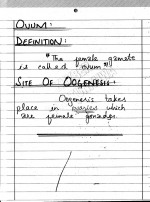 OVUM:
DEFINITION:
"The female gamete
is called ovum"
SITE OF OOGENESIS:
Oogenesis takes
place in ovaries which
are female gonads.